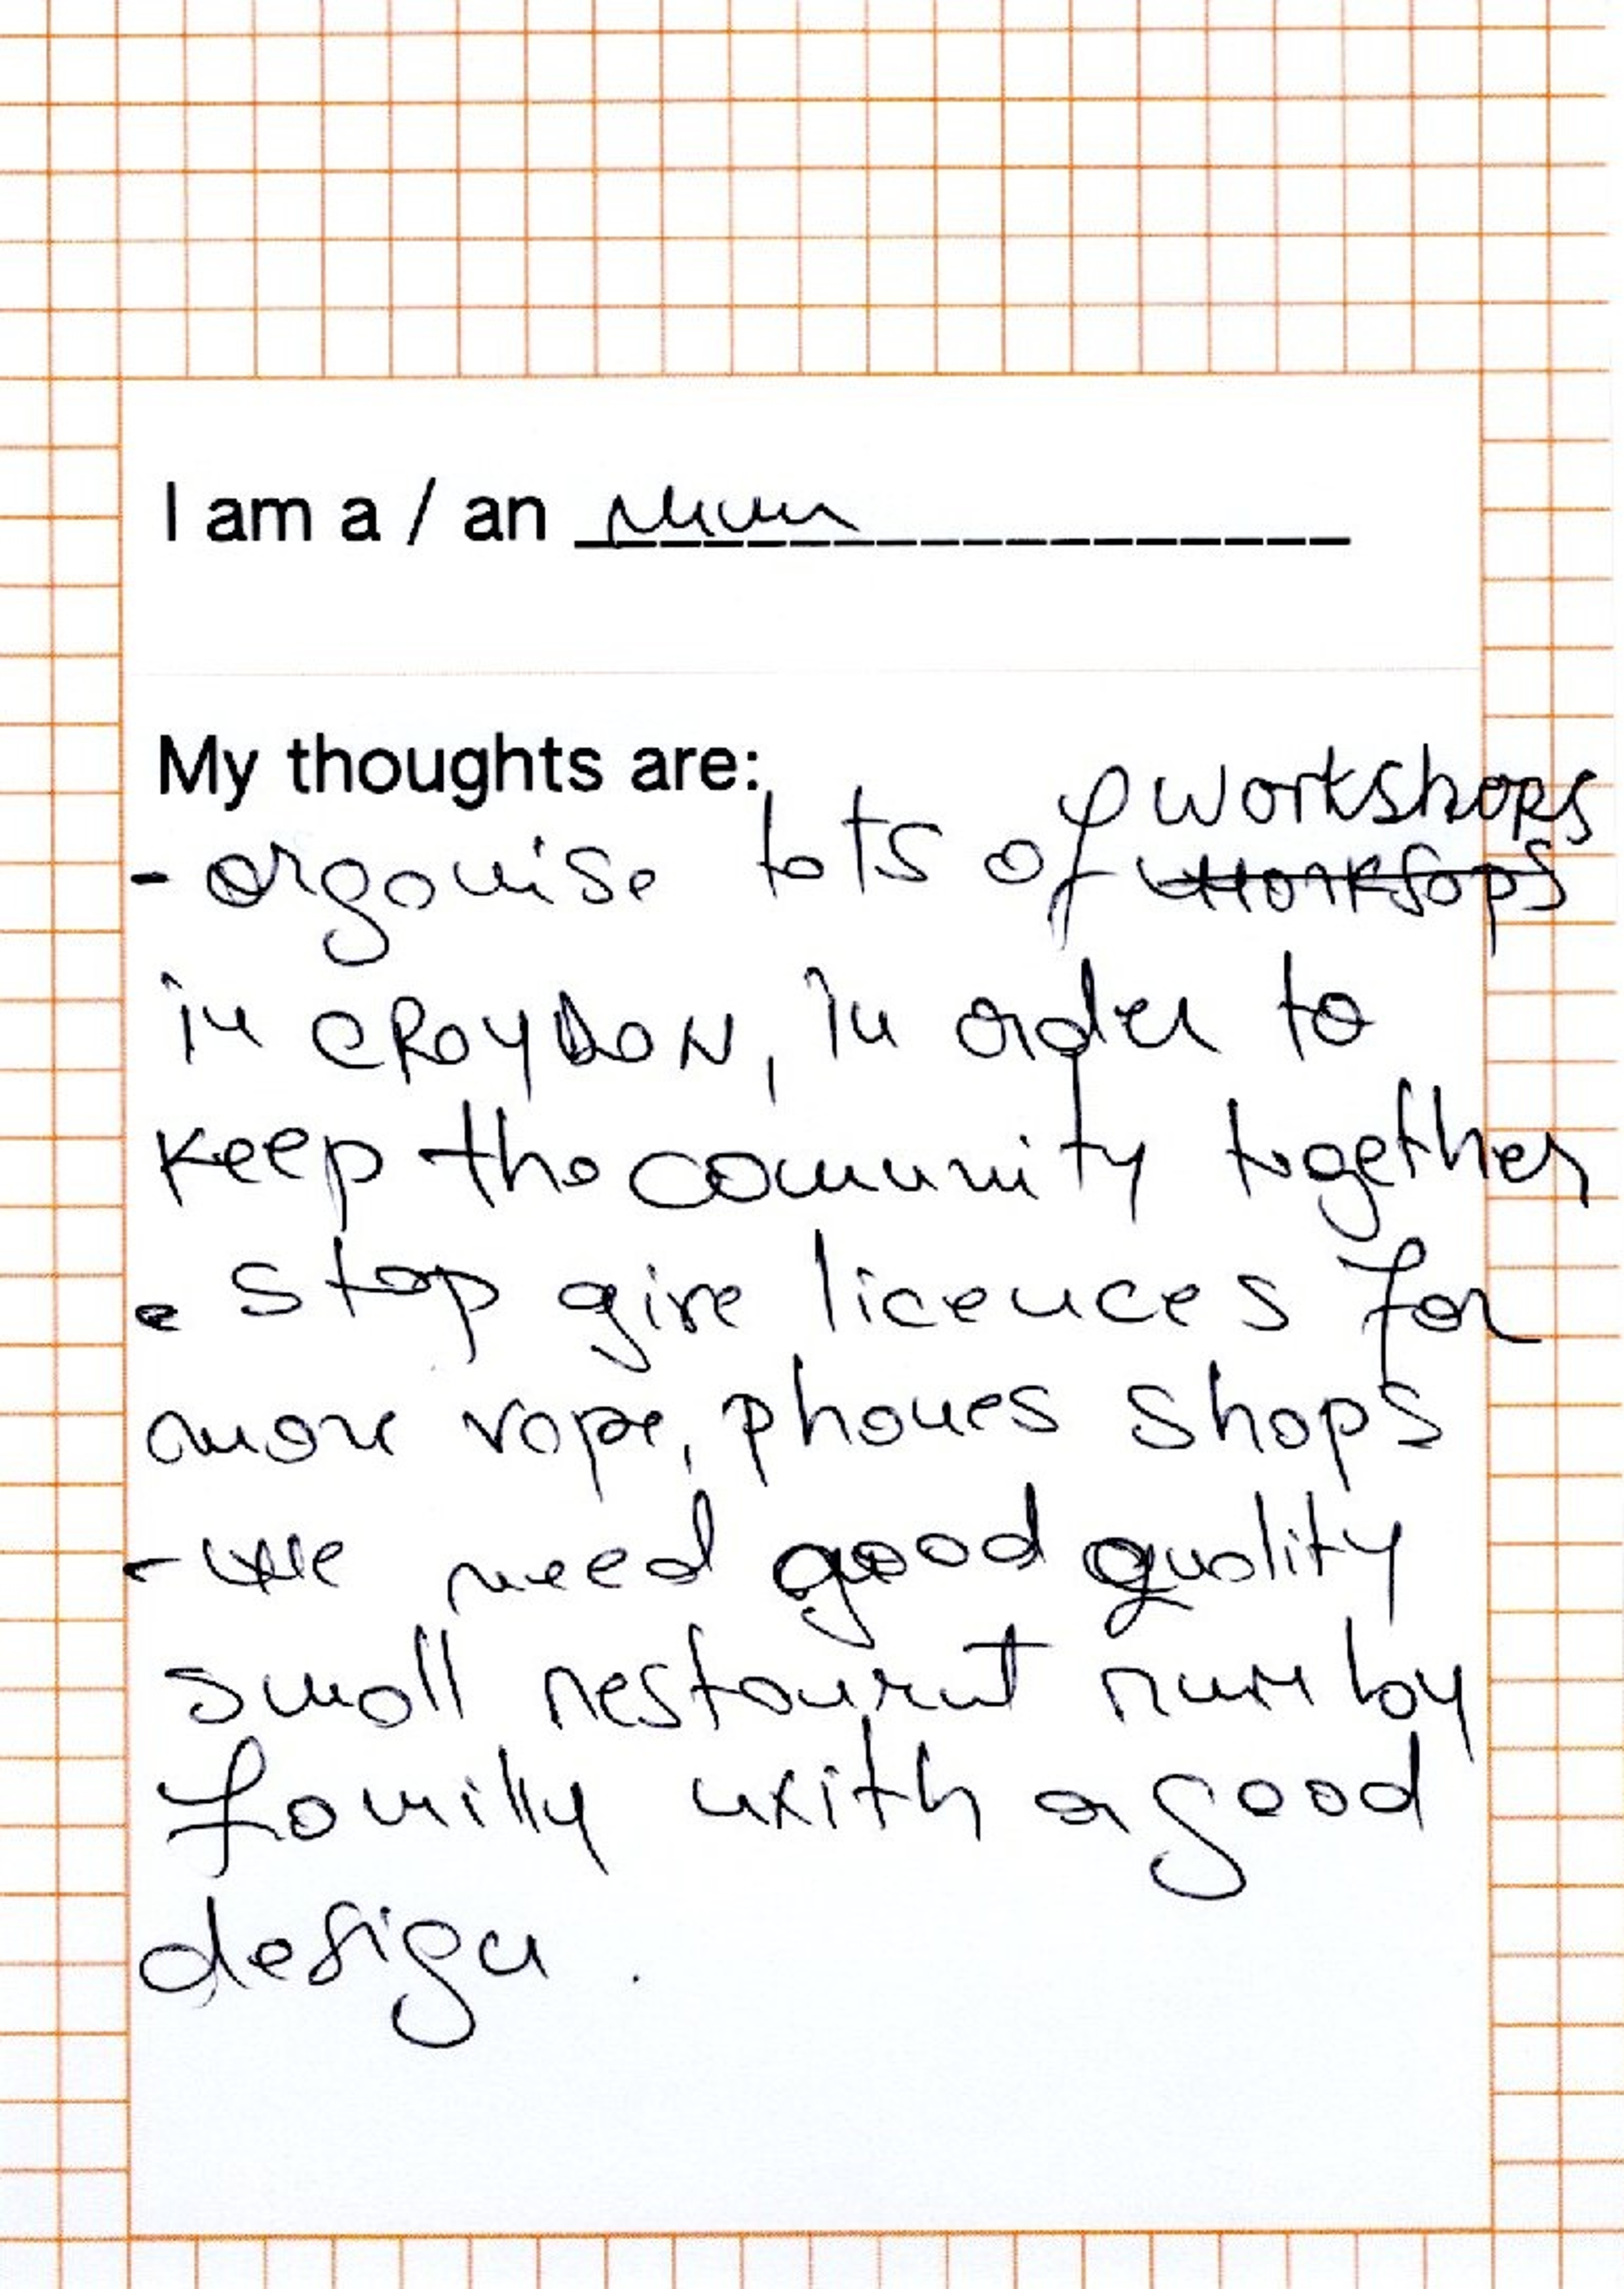 I am a / an Mum
My thoughts are:
- organise lots of workshops
~~worksops~~
in CROYDON, in order to
keep the comunity together
- stop give licences for
more vape, phones shops
- we need good quality
small restaurant run by
familly with a good
design.